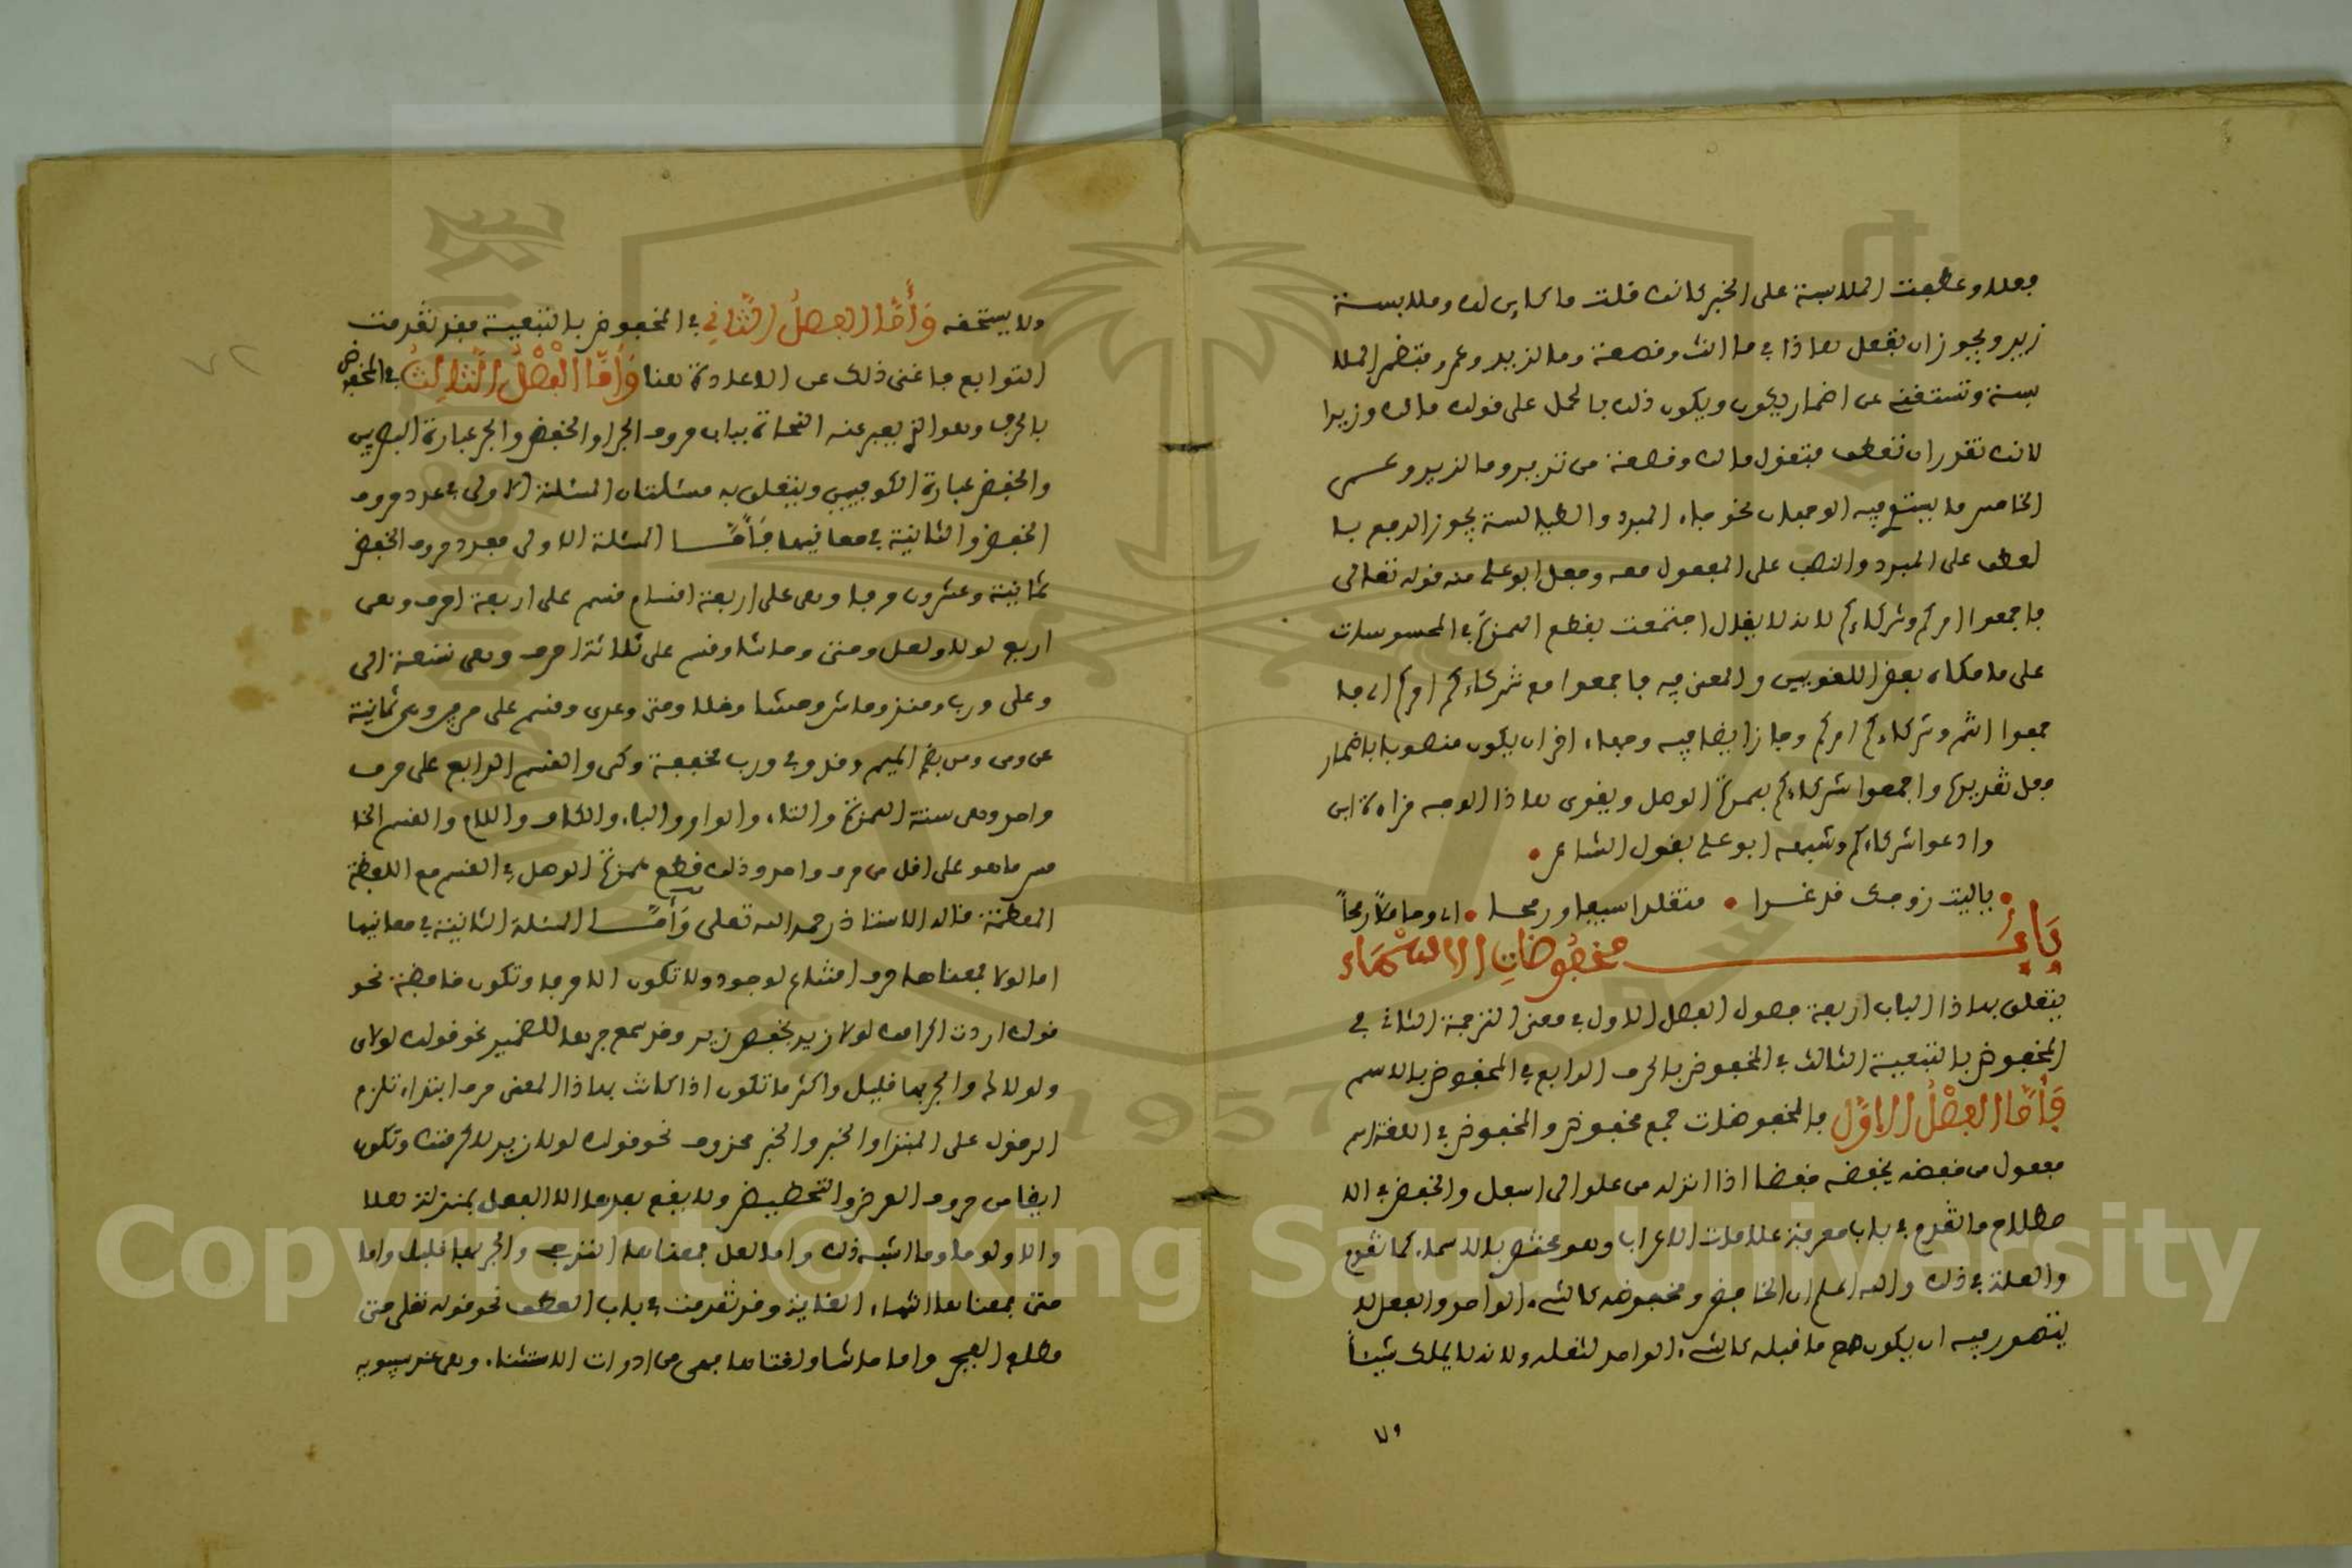 فعلا وعطفت الملابسة على الخبر كانك قلت ما كاين لك وملابسة
زيد ويجوز ان تفعل هاذا في ما انت وقصعة وما لزيد وعمرو فتضمر الملا
بسة وتستغني عن اضمار يكون ويكون ذلك بالحمل على قولك مالك وزيدا
لانك تقدر ان تعطف فتقول مالك وقصعة من ثريد وما لزيد وعمرو
الخامس ما يتسع فيه الوجهان نحو جاء البرد والطيالسة يجوز الرفع با
لعطف على البرد والنصب على المفعول معه وجعل ابو علي منه قوله تعالى
فاجمعوا امركم وشركاءكم لانه لا يقال اجتمعت بقطع الهمزة في المحسوسات
على ما حكاه بعض اللغويين والمعنى فيه فاجمعوا مع شركاءكم امركم اي فا
جمعوا انتم وشركاءكم امركم وجاز ايضا فيه وجهاء اخر ان يكون منصوبا باضمار
فعل تقديره واجمعوا شركاءكم بهمزة الوصل ويقوى هاذا الوجه قراءة ابي
وادعوا شركاءكم وشبهه ابو علي بقول الشاعر
ياليت زوجك قد غدا متقلدا سيفا ورمحا اي وحاملا رمحا
باب مخفوضات الاسماء
يتعلق بهاذا الباب اربعة فصول الفصل الاول في معنى الترجمة الثاني في
المخفوض بالتبعية الثالث في المخفوض بالحرف الرابع في المخفوض بالاسم
فأما الفصل الاول فالمخفوضات جمع مخفوض والمخفوض في اللغة اسم
مفعول من خفضه يخفضه خفضا اذا انزله من علو الى اسفل والخفض في الا
صطلاح ما تقدم في باب معرفة علامات الاعراب وهو مختص بالاسماء كما تقدم
والعلة في ذلك والله اعلم ان الخافض ومخفوضه كالشيء الواحد والفعل لا
يتصور فيه ان يكون مع ما قبله كالشيء الواحد لثقله ولانه لا يملك شيئا
ولا يستحقه وأما الفصل الثاني في المخفوض بالتبعية فقد تقدمت
التوابع فاغنى ذلك عن الاعادة هنا وأما الفصل الثالث في المخفوض
بالحرف وهو الذي يعبر عنه النحاة بباب حروف الجر او الخفض والجر عبارة البصريين
والخفض عبارة الكوفيين ويتعلق به مسئلتان المسئلة الاولى في عدد حروف
الخفض والثانية في معانيها فأما المسئلة الاولى فعدد حروف الخفض
ثمانية وعشرون حرفا وهي على اربعة اقسام قسم على اربعة احرف وهي
اربع لولا ولعل وحتى وحاشا وقسم على ثلاثة احرف وهي تسعة الى
وعلى ورب ومنذ وحاش وحشا وخلا ومتى وعدى وقسم على حرفين وهي ثمانية
عن ومن ومن بضم الميم ومذ وفي ورب مخففة وكي والقسم الرابع على حرف
واحد وهي ستة الهمزة والتاء والواو والباء والكاف واللام والقسم الخا
مس ما هو على اقل من حرف واحد وذلك قطع همزة الوصل في القسم مع اللفظة
المعظمة قاله الاستاذ رحمه الله تعلى وأما المسئلة الثانية في معانيها
اما لولا فمعناها حرف امتناع لوجود ولا تكون الا حرفا وتكون خافضة نحو
قولك اردت اكرامك لولا زيد بخفض زيد وقد سمع جرها للضمير نحو قولك لولاي
ولولاك والجر بها قليل واكثر ما تكون اذا كانت بهاذا المعنى حرف ابتداء تلزم
الدخول على المبتدا والخبر والخبر محذوف نحو قولك لولا زيد لاكرمتك وتكون
ايضا من حروف العرض والتحضيض ولا يقع بعدها الا الفعل بمنزلة هلا
والا ولوما وما اشبه ذلك واما لعل فمعناها الترجي والجر بها قليل واما
حتى فمعناها انتهاء الغاية وقد تقدمت في باب العطف نحو قوله تعلى حتى
مطلع الفجر واما حاشا ولغتاها فهي من ادوات الاستثناء وهي عند سيبويه